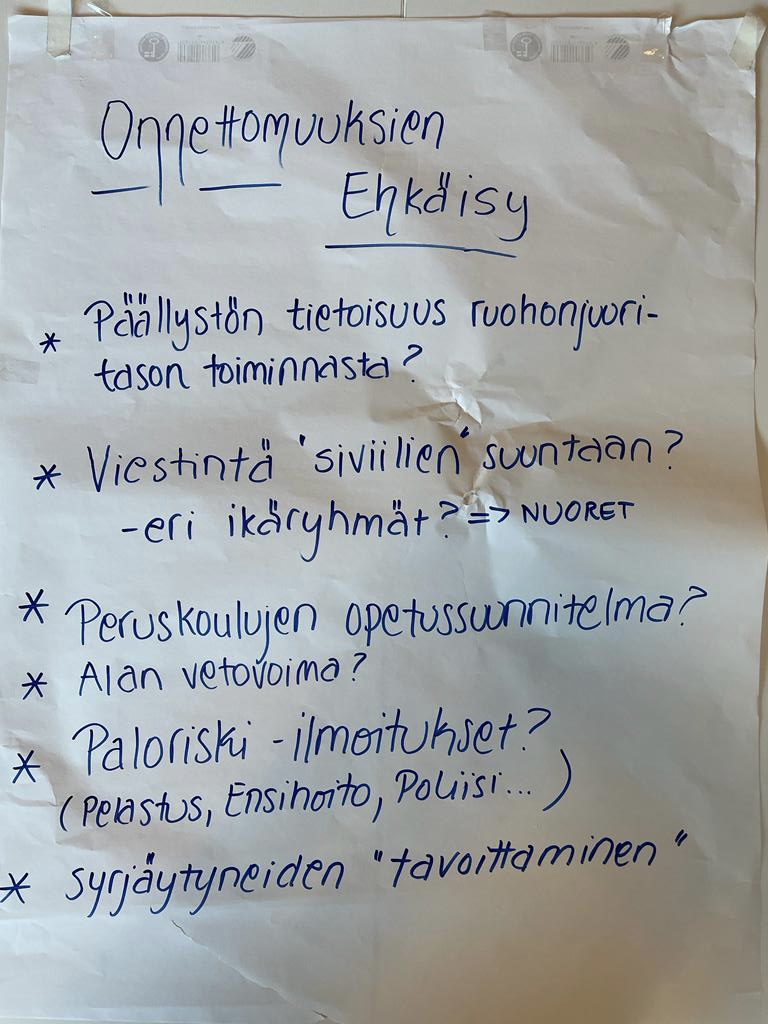 Onnettomuuksien
Ehkäisy
* Päällystön tietoisuus ruohonjuuri-
tason toiminnasta?
* Viestintä 'siviilien' suuntaan?
-eri ikäryhmät? => NUORET
* Peruskoulujen opetussuunnitelma?
* Alan vetovoima?
* Paloriski -ilmoitukset?
(Pelastus, Ensihoito, Poliisi...)
* syrjäytyneiden "tavoittaminen"